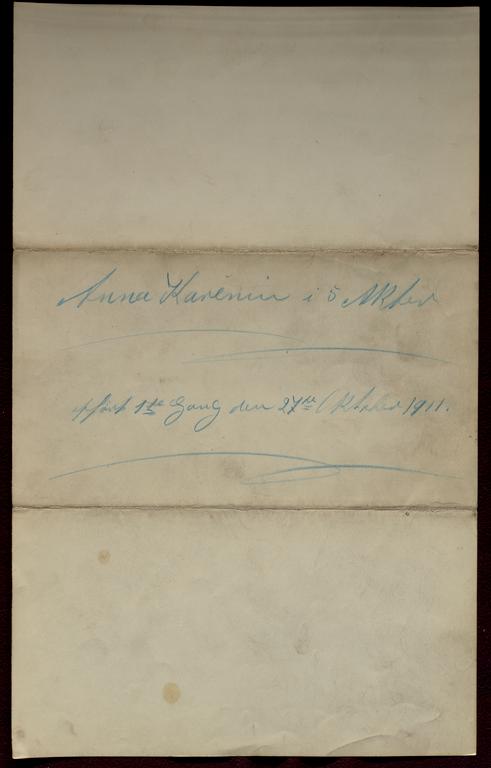 Anna Karénin i 5 Akter
opført 1ste Gang den 27de Oktober 1911.